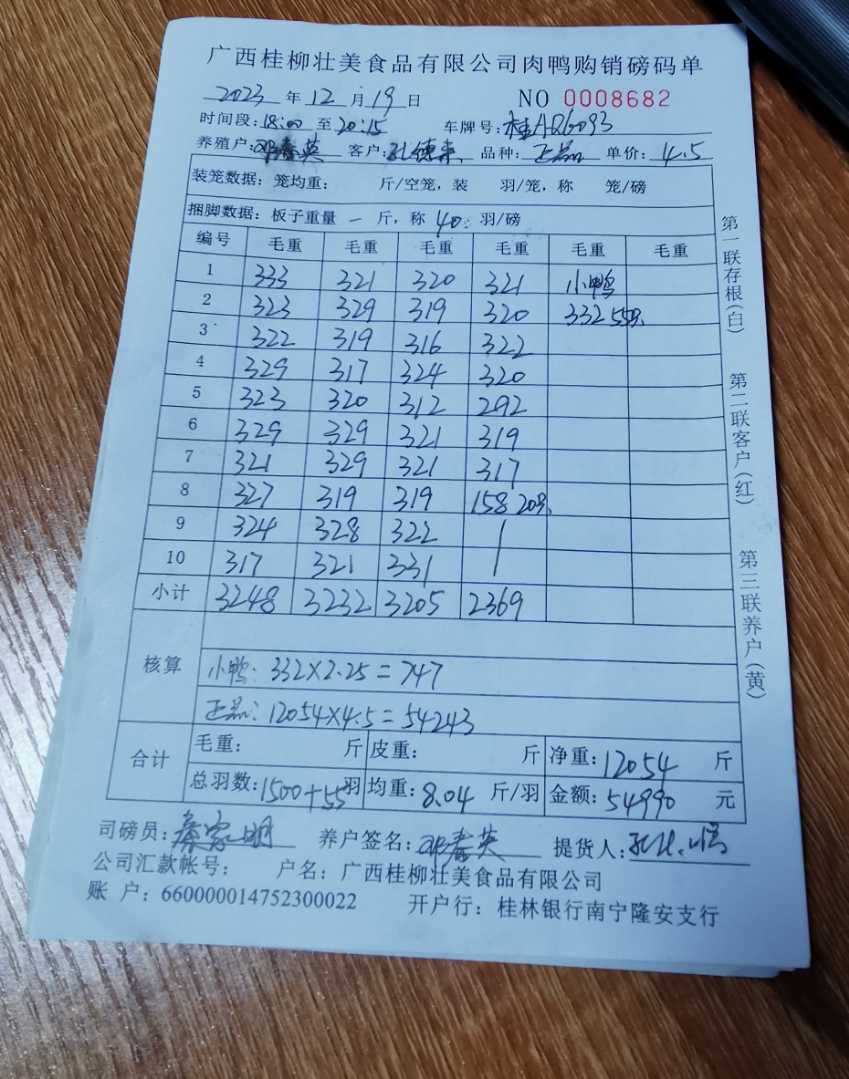 广西桂柳壮美食品有限公司肉鸭购销磅码单
2023 年 12 月 19 日 NO 0008682
时间段: 18:00 至 20:15 车牌号: 桂AQ6093
养殖户: 邓春英 客户: 品种: 正品 单价: 4.5
装笼数据: 笼均重: 斤/空笼, 装 羽/笼, 称 笼/磅
捆脚数据: 板子重量 一 斤, 称 40 羽/磅
编号 毛重 毛重 毛重 毛重 毛重 毛重
1 333 321 320 321 小鸭
2 323 329 319 320 332 55羽
3 322 319 316 322
4 329 317 324 320
5 323 320 312 292
6 329 329 321 319
7 321 329 321 317
8 327 319 319 158 20羽
9 324 328 322
10 317 321 331
小计 3248 3232 3205 2369
核算
小鸭: 332×2.25=747
正品: 12054×4.5=54243
合计 毛重: 斤 皮重: 斤 净重: 12054 斤
总羽数: 1500+55 羽 均重: 8.04 斤/羽 金额: 54990 元
司磅员: 养户签名: 邓春英 提货人:
公司汇款帐号: 户名: 广西桂柳壮美食品有限公司
账户: 660000014752300022 开户行: 桂林银行南宁隆安支行
第一联存根(白)
第二联客户(红)
第三联养户(黄)